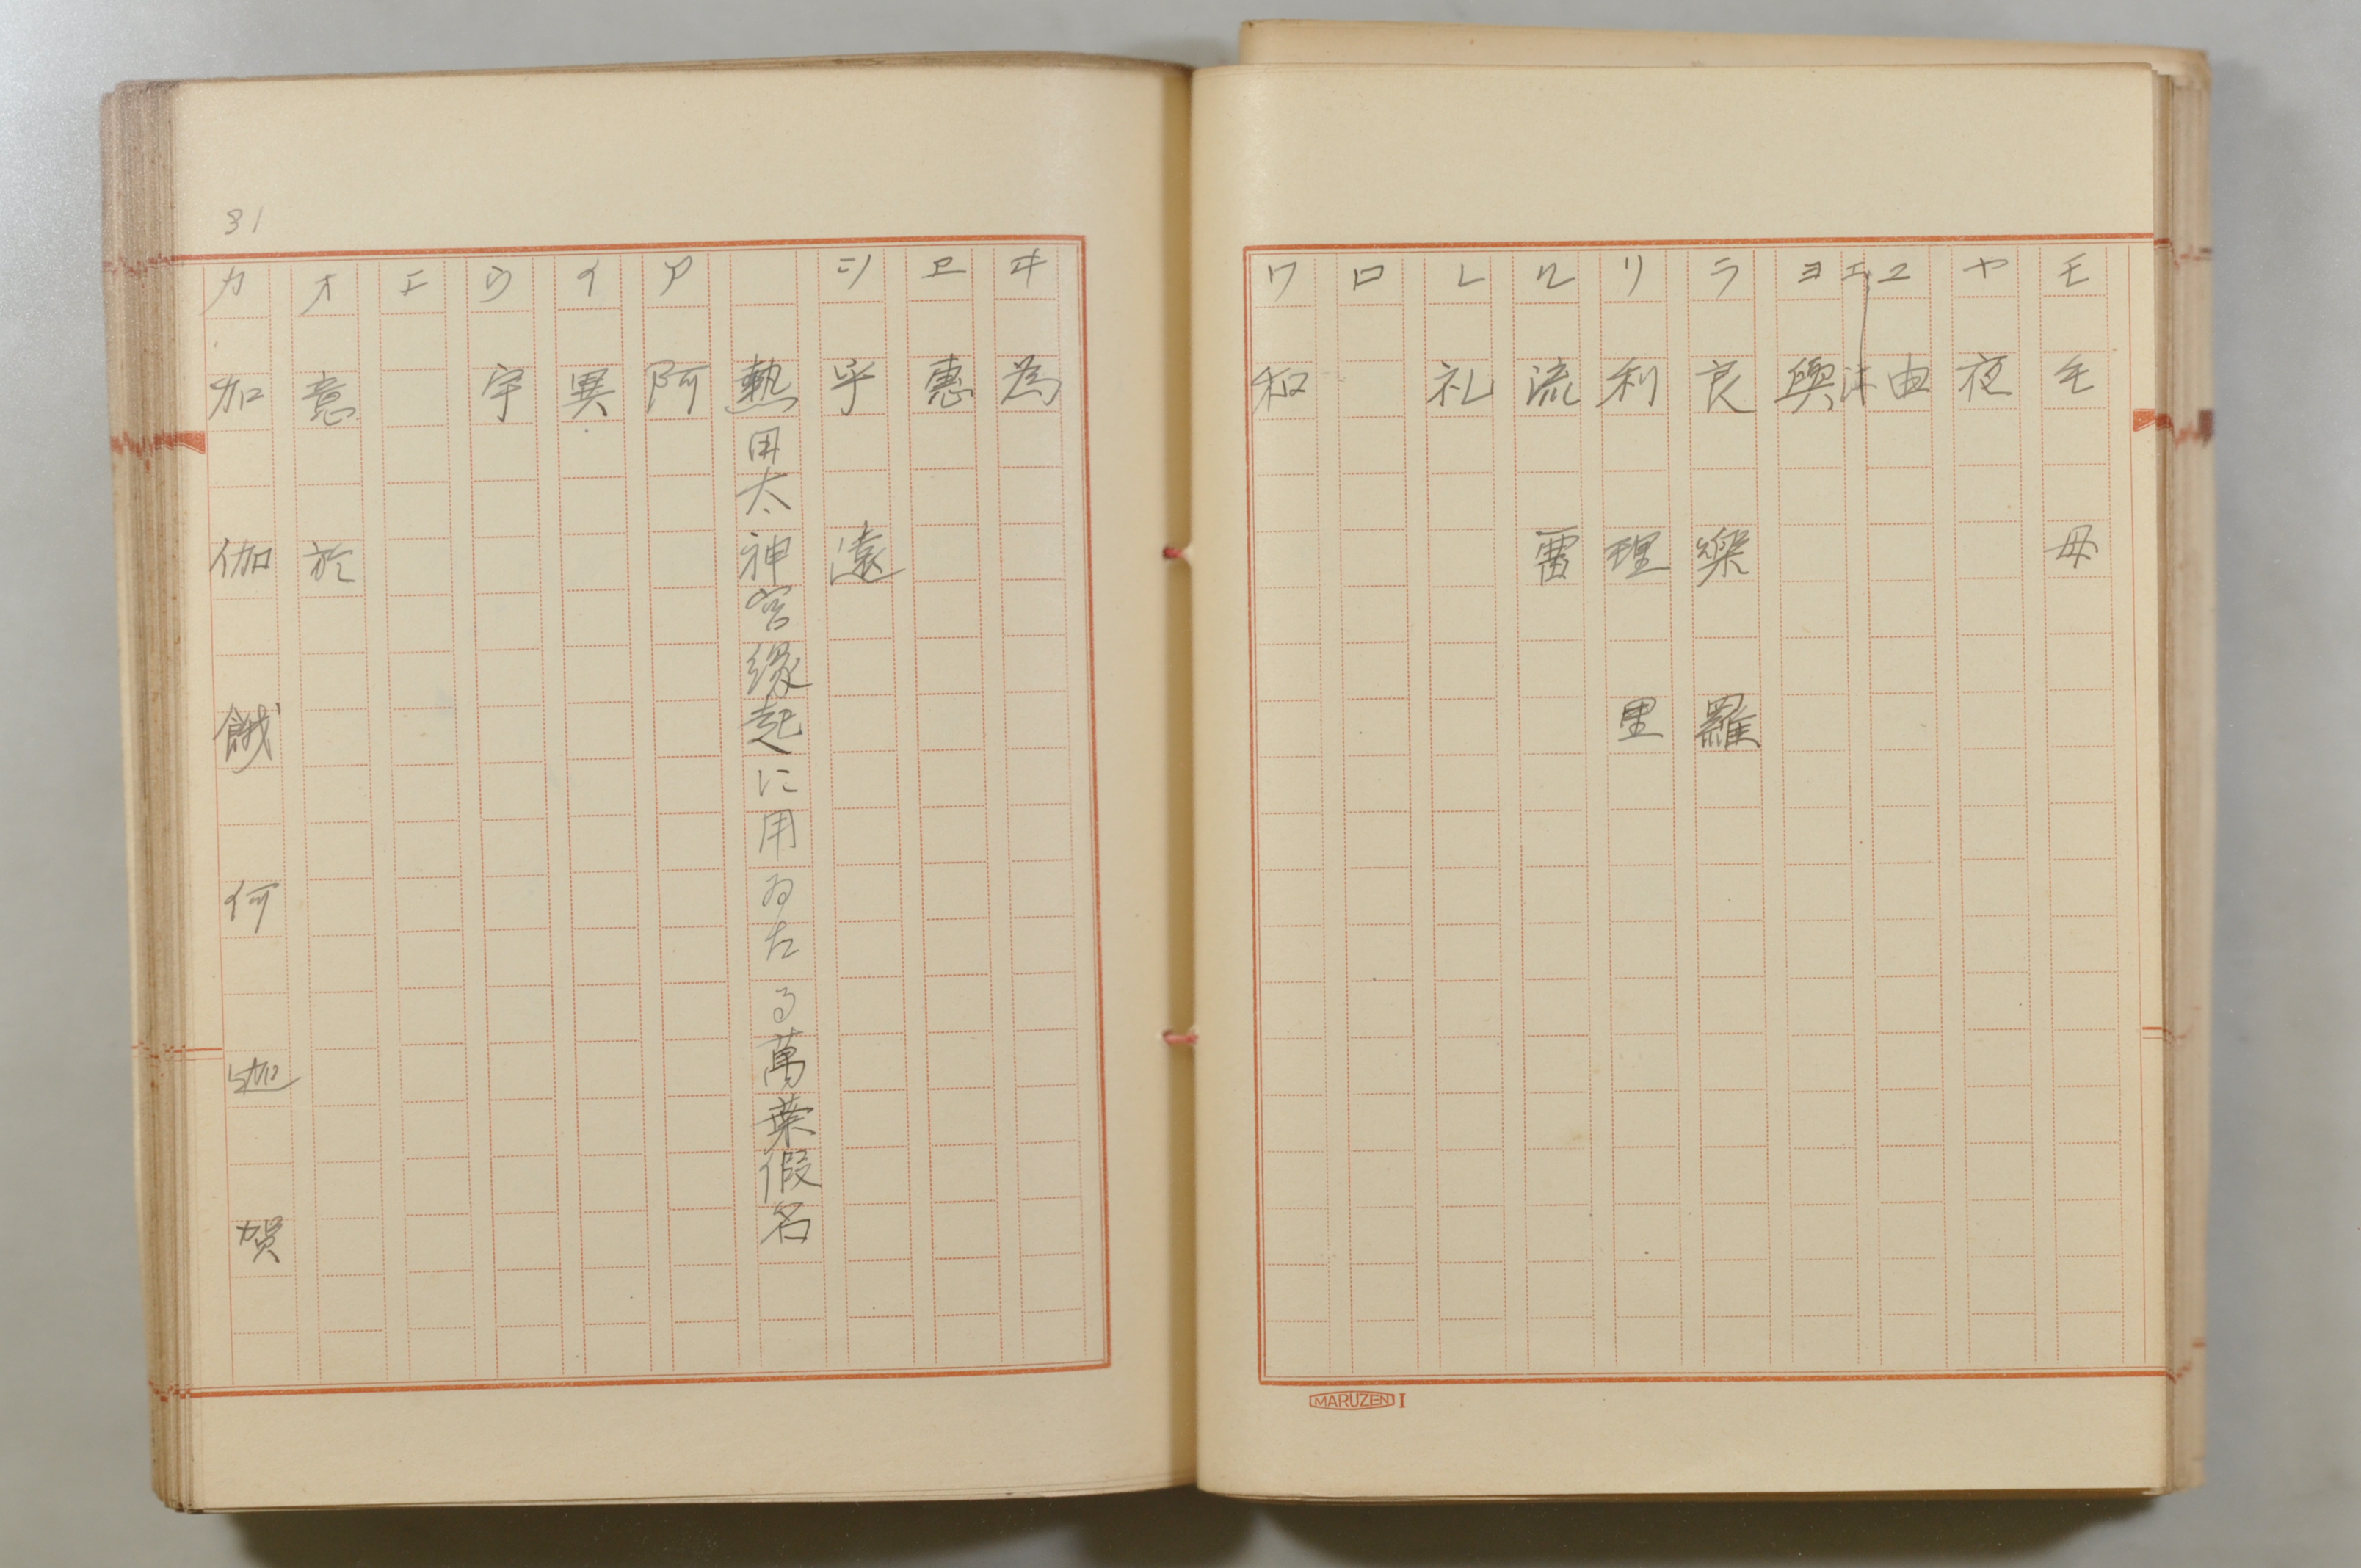 モ 毛 母
ヤ 夜
ユ 由
エ
ヨ 與
ラ 良 樂 羅
リ 利 理 里
ル 流 雷
レ 礼
ロ
ワ 和
MARUZEN I
ヰ 為
ヱ 惠
ヲ 乎 遠
熱田太神宮縁起に用ゐたる萬葉假名
ア 阿
イ 異
ウ 宇
エ
オ 意 於
カ 加 伽 餓 何 迦 賀
31